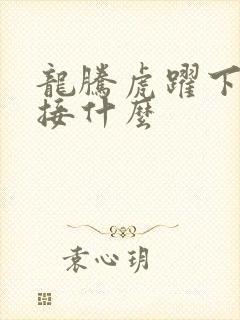 龍騰虎躍下
接什麼
袁心玥